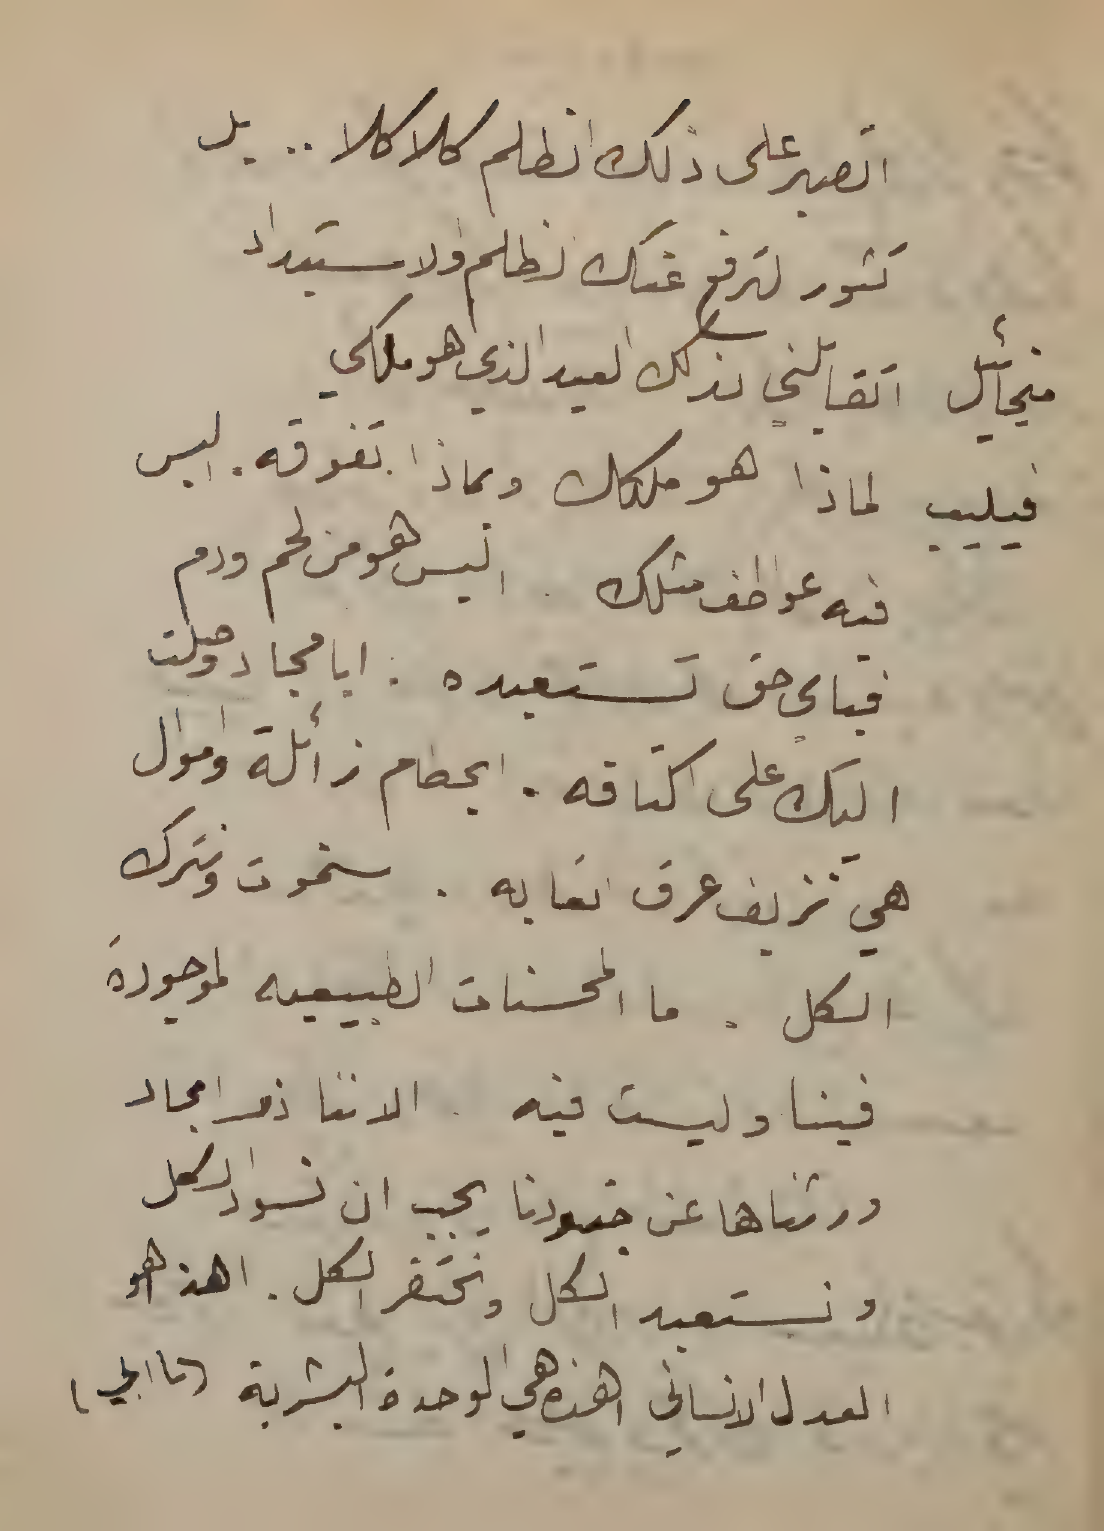 اتصبر على ذلك الظلم كلا كلا .. بل
تثور لترفع عنك الظلم والاستبداد
ميخائيل اتقابلني بذلك العبد الذي هو ملكي
فيليب لماذا هو ملكك وبماذا تفوقه. اليس
فيه عواطف مثلك . اليس هو من لحم ودم
فباي حق تستعبده . ابامجاد وصلت
اليك على اكتافه . ابحطام زائلة واموال
هي نزيف عرق اتعابه . ستموت وتترك
الكل . ما المحسنات الطبيعيه الموجودة
فينا وليست فيه . الاننا ذو امجاد
ورثناها عن جدودنا يجب ان نسود الكل
ونستعبد الكل ونحتقر الكل . اهذا هو
العدل الانساني اهذه هي الوحدة البشرية